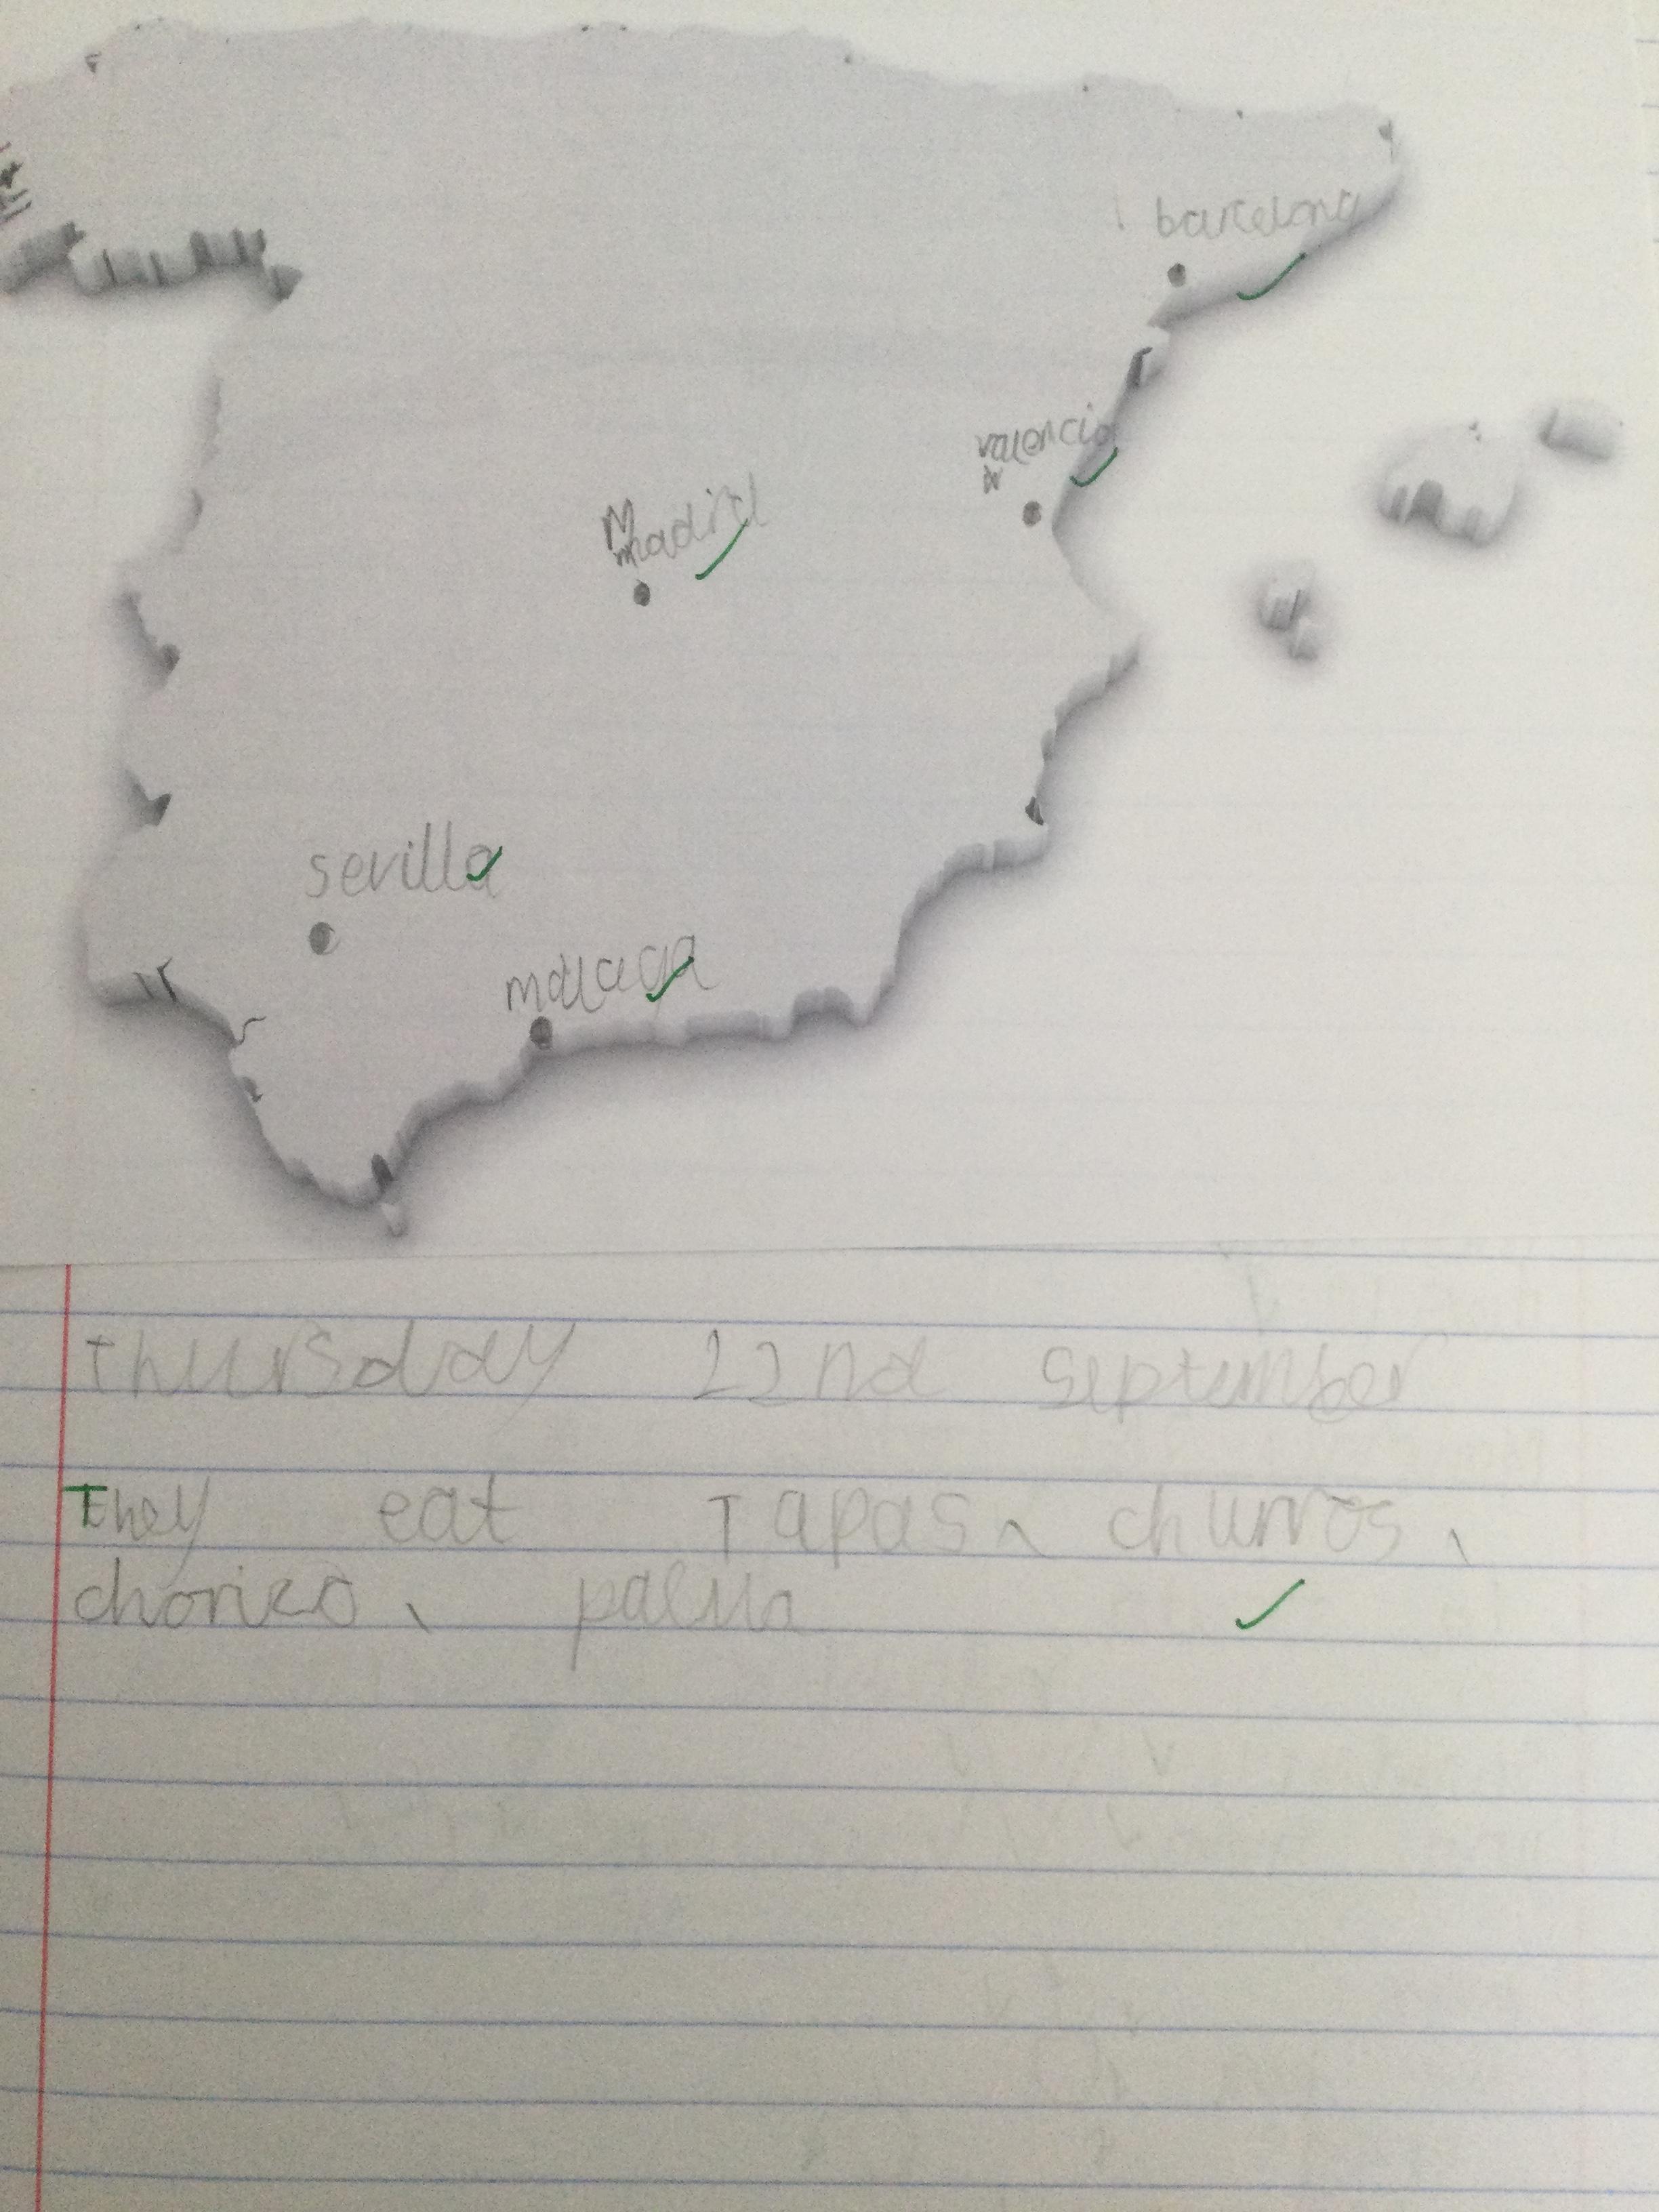 barcelona
valencia
Madrid
sevilla
malaga
thursday 22nd september
They eat Tapas, churros,
chorizo, pallla